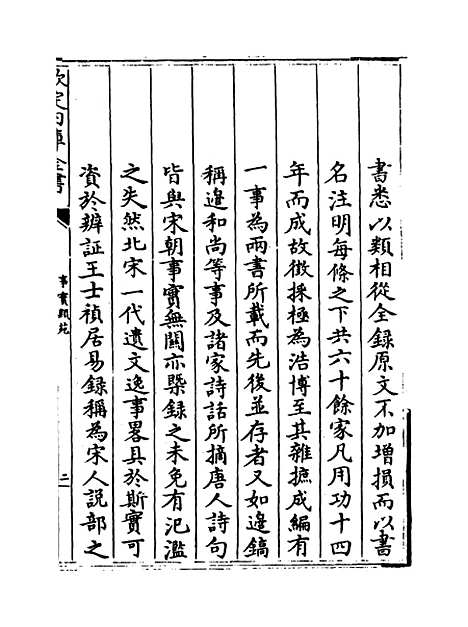 書悉以類相從全録原文不加增損而以書
名注明每條之下共六十餘家凡用功十四
年而成故徴採極為浩博至其雜摭成編有
一事為兩書所載而先後並存者又如邉鎬
稱邉和尚等事及諸家詩話所摘唐人詩句
皆與宋朝事實無闗亦槩録之未免有氾濫
之失然北宋一代遺文逸事畧具於斯實可
資於辨証王士禎居易録稱為宋人說部之
欽定四庫全書
事實類苑
二